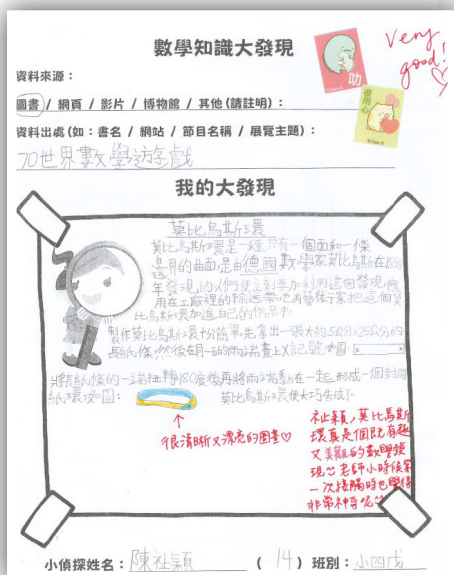 數學知識大發現
Very good!
叻
很用心
資料來源：
圖書 / 網頁 / 影片 / 博物館 / 其他 (請註明)：
資料出處 (如：書名 / 網站 / 節目名稱 / 展覽主題)：
70世界數學遊戲
我的大發現
莫比烏斯環
莫比烏斯環是一種只有一個面和一條
邊界的曲面是由德國數學家莫比烏斯在
年發現的人們使
用在工廠裡的輸送帶也有藝術行家把這個莫
比烏斯環加進自己的作品中。
製作莫比烏斯環十分簡單,先拿出一張大約
長紙條,然後在同一的兩端畫上X記號,如圖:
將長紙條的一端扭轉180度後再將兩端黏在一起,形成一個封閉
紙環,如圖:
莫比烏斯環便大巧告成了。
很清晰又漂亮的圖畫♡
祉穎，莫比烏斯
環真是個既有趣
又美觀的數學發
現 老師小時候第
一次接觸時也覺得
非常神奇呢
小偵探姓名：陳祉穎 (14) 班別：小四戊